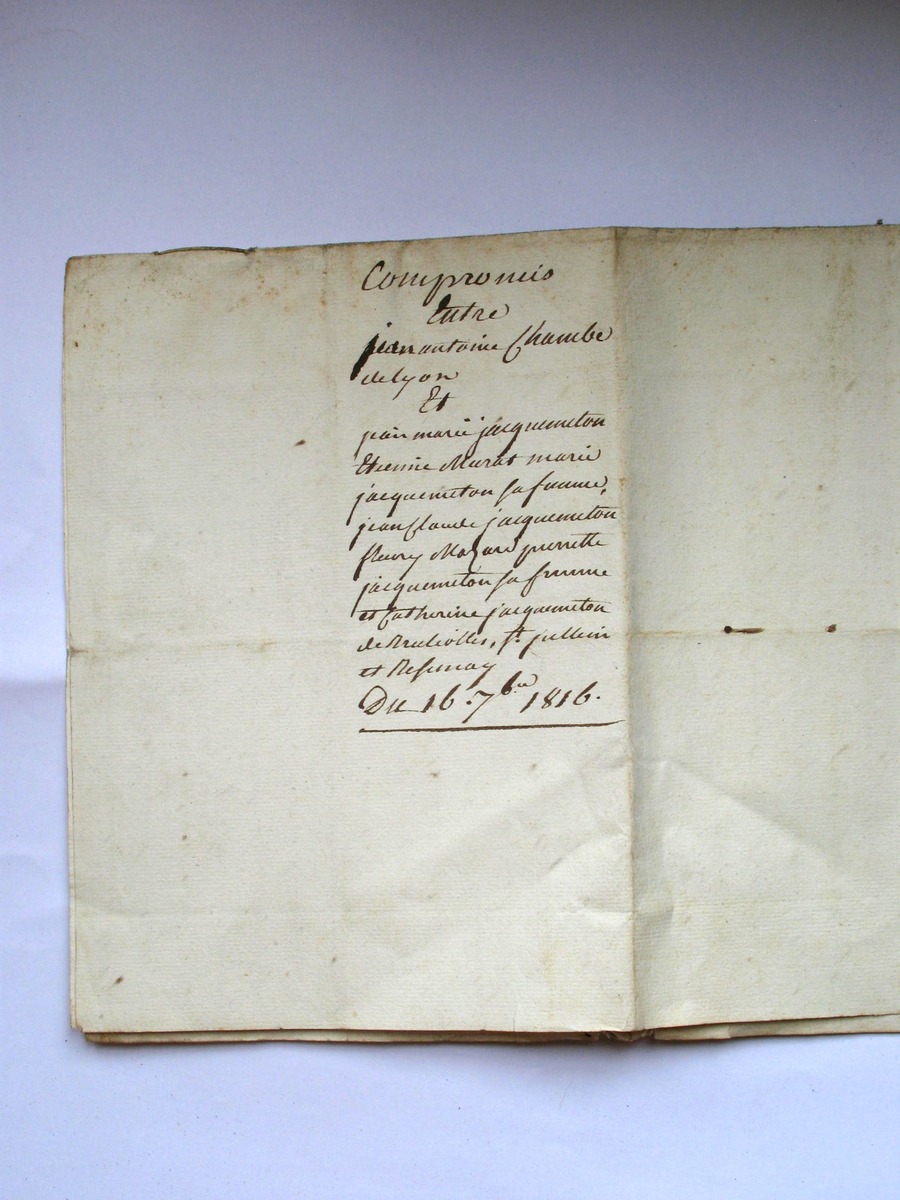 Compromis
Entre
jean antoine Chambe
de lyon
Et
jean marie jacquemeton
Etienne Murat marie
jacquemeton sa femme,
jean Claude jacquemeton
fleury Mazard pierrette
jacquemeton sa femme
et Catherine jacquemeton
de Brulioles, St. jullien
et Bessenay
Du 16. 7bre 1816.